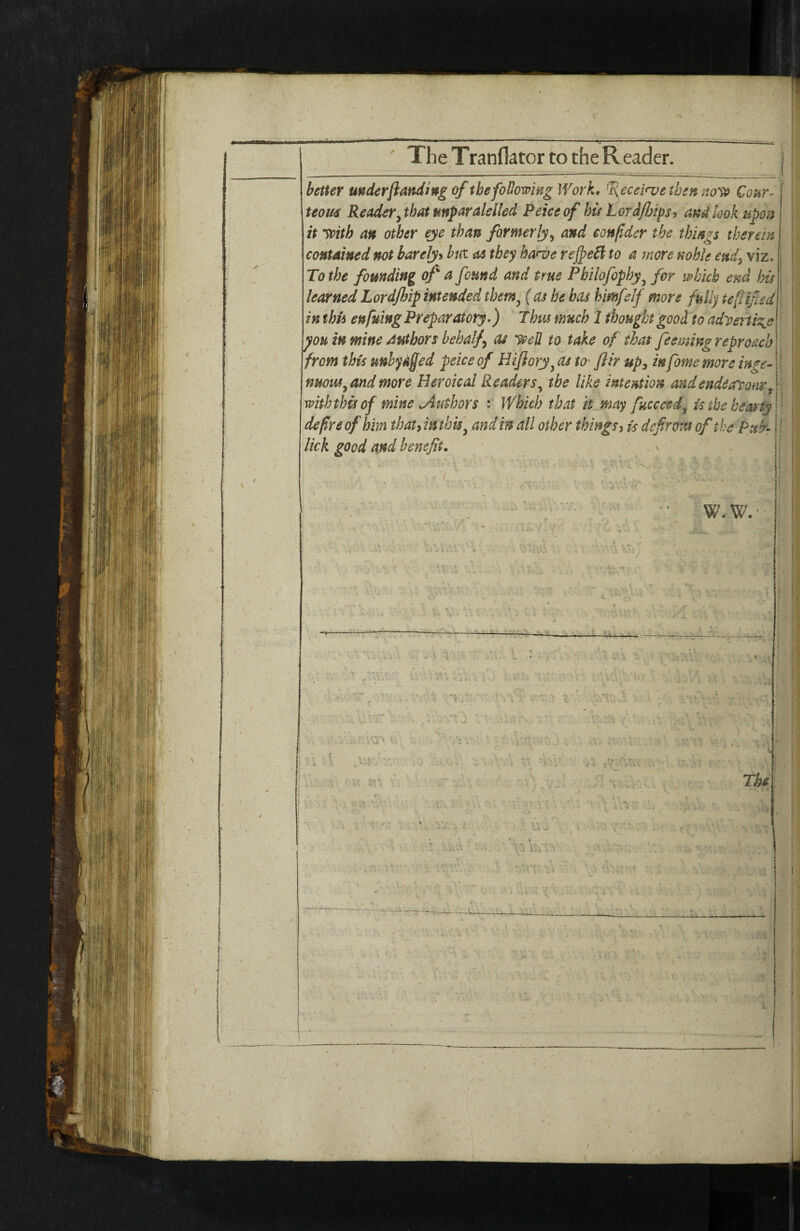 The Tranſlator to the Reader.
better underſtanding of the following Work. Receive then now Cour-
teous Reader, that unparalelled Peice of his Lordſhips, and look upon
it with an other eye than formerly, and conſider the things therein
contained not barely, but as they have reſpect to a more noble end, viz.
To the founding of a ſound and true Philoſophy, for which end his
learned Lordſhip intended them, (as he has himſelf more fully teſtified
in this enſuing Preparatory.) Thus much I thought good to advertize
you in mine Authors behalf, as well to take of that ſeeming reproach
from this unbyaſſed peice of Hiſtory, as to ſtir up, in ſome more inge-
nuous, and more Heroical Readers, the like intention and endeavour,
with this of mine Authors : Which that it may ſucceed, is the hearty
deſire of him that, in this, and in all other things, is deſirous of the Pub-
lick good and benefit.
W. W.
The